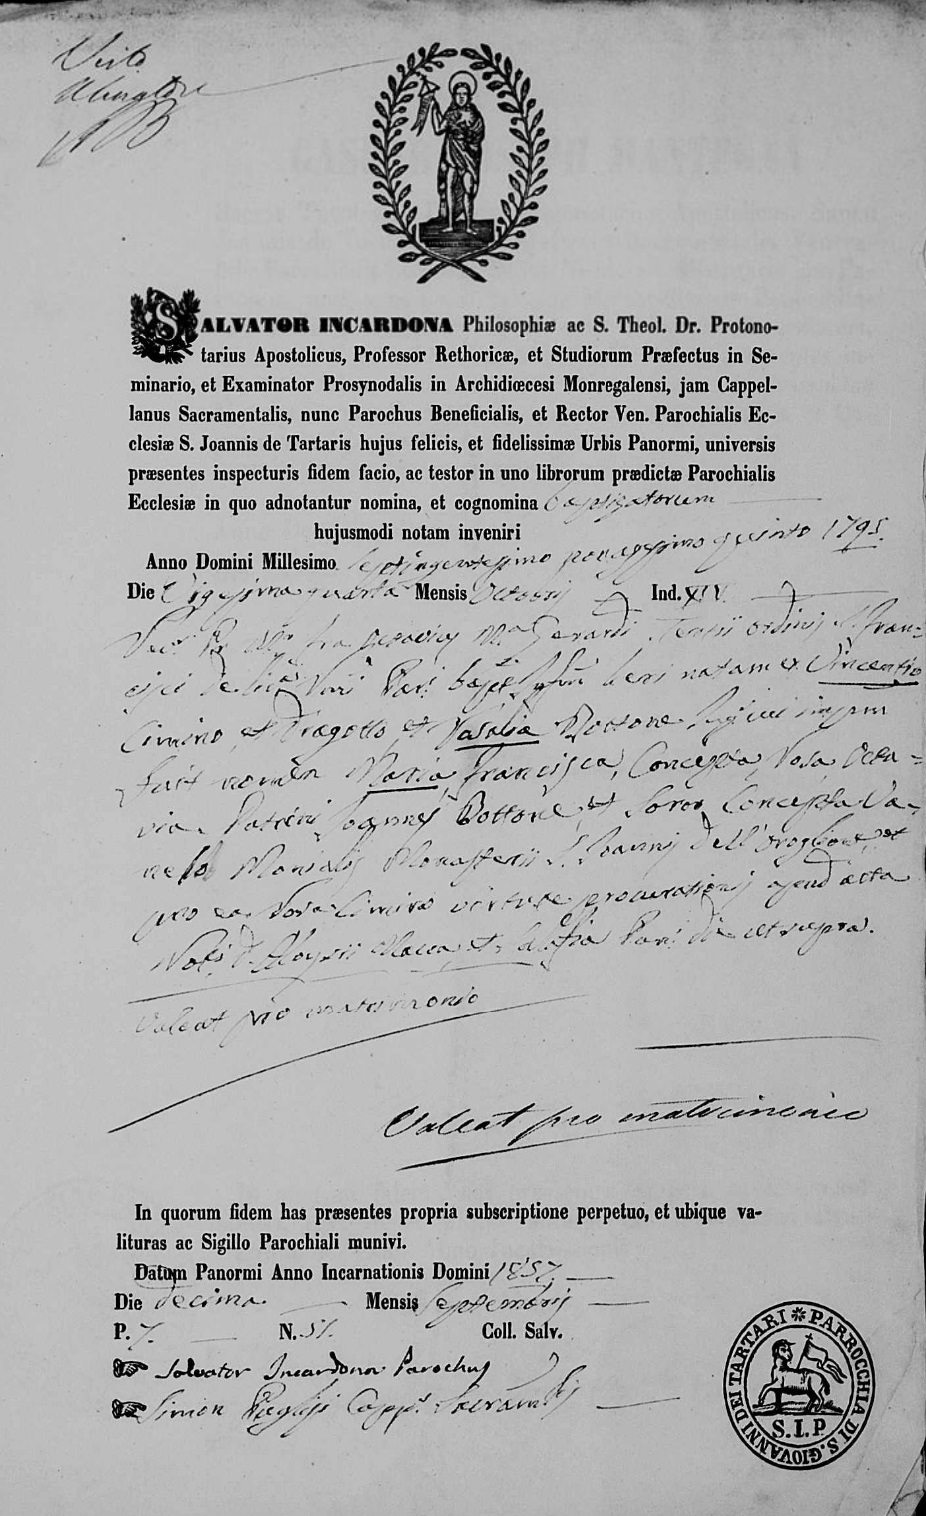 Visto
SALVATOR INCARDONA Philosophiæ ac S. Theol. Dr. Protono-
tarius Apostolicus, Professor Rethoricæ, et Studiorum Præfectus in Se-
minario, et Examinator Prosynodalis in Archidiœcesi Monregalensi, jam Cappel-
lanus Sacramentalis, nunc Parochus Beneficialis, et Rector Ven. Parochialis Ec-
clesiæ S. Joannis de Tartaris hujus felicis, et fidelissimæ Urbis Panormi, universis
præsentes inspecturis fidem facio, ac testor in uno librorum prædictæ Parochialis
Ecclesiæ in quo adnotantur nomina, et cognomina baptizatorum
hujusmodi notam inveniri
Anno Domini Millesimo septingentesimo nonagesimo quinto 1795.
Die Vigesima quarta Mensis Octobris Ind. XIV.
Gerardi Tertii ordinis S. Fran-
cisci de heri natam ex Vincentio
Cimino et Dragotto, et Rosalia Bottone
fuit nomen Maria, Francisca, Concepta, Rosa, Octa-
via. Patrini Joannes Bottone, et Soror Concepta Va-
Monialis Monasterii S. Joannis dell'Origlione, et
pro ea Rosa Cimino virtute procurationis
die ut supra.
Valeat pro matrimonio
Valeat pro matrimonio
In quorum fidem has præsentes propria subscriptione perpetuo, et ubique va-
lituras ac Sigillo Parochiali munivi.
Datum Panormi Anno Incarnationis Domini 1857.
Die decima Mensis Septembris
P. 7. N. 51. Coll. Salv.
Salvator Incardona Parochus
Simon Capp. Sacramlis
PARROCCHIA DI S. GIOVANNI DEI TARTARI
S.I.P